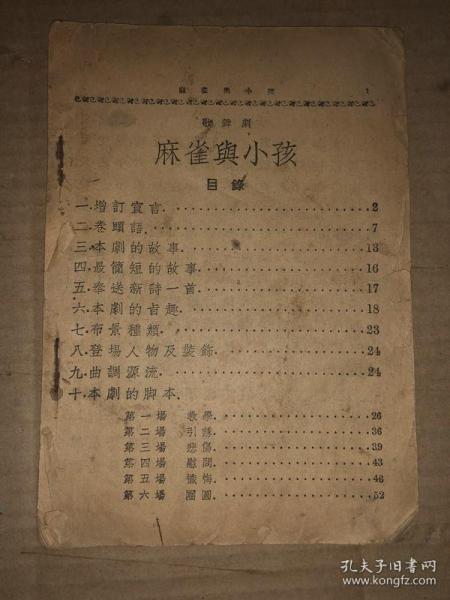 麻雀與小孩 1
歌舞劇
麻雀與小孩
目錄
一.增訂宣言 2
二.卷頭語 7
三.本劇的故事 13
四.最簡短的故事 16
五.奉送新詩一首 17
六.本劇的旨趣 18
七.布景種類 23
八.登場人物及裝飾 24
九.曲調源流 24
十.本劇的脚本
第一場 教學 26
第二場 引誘 36
第三場 悲傷 39
第四場 慰問 43
第五場 懺悔 46
第六場 團圓 52
孔夫子旧书网
www.kongfz.com